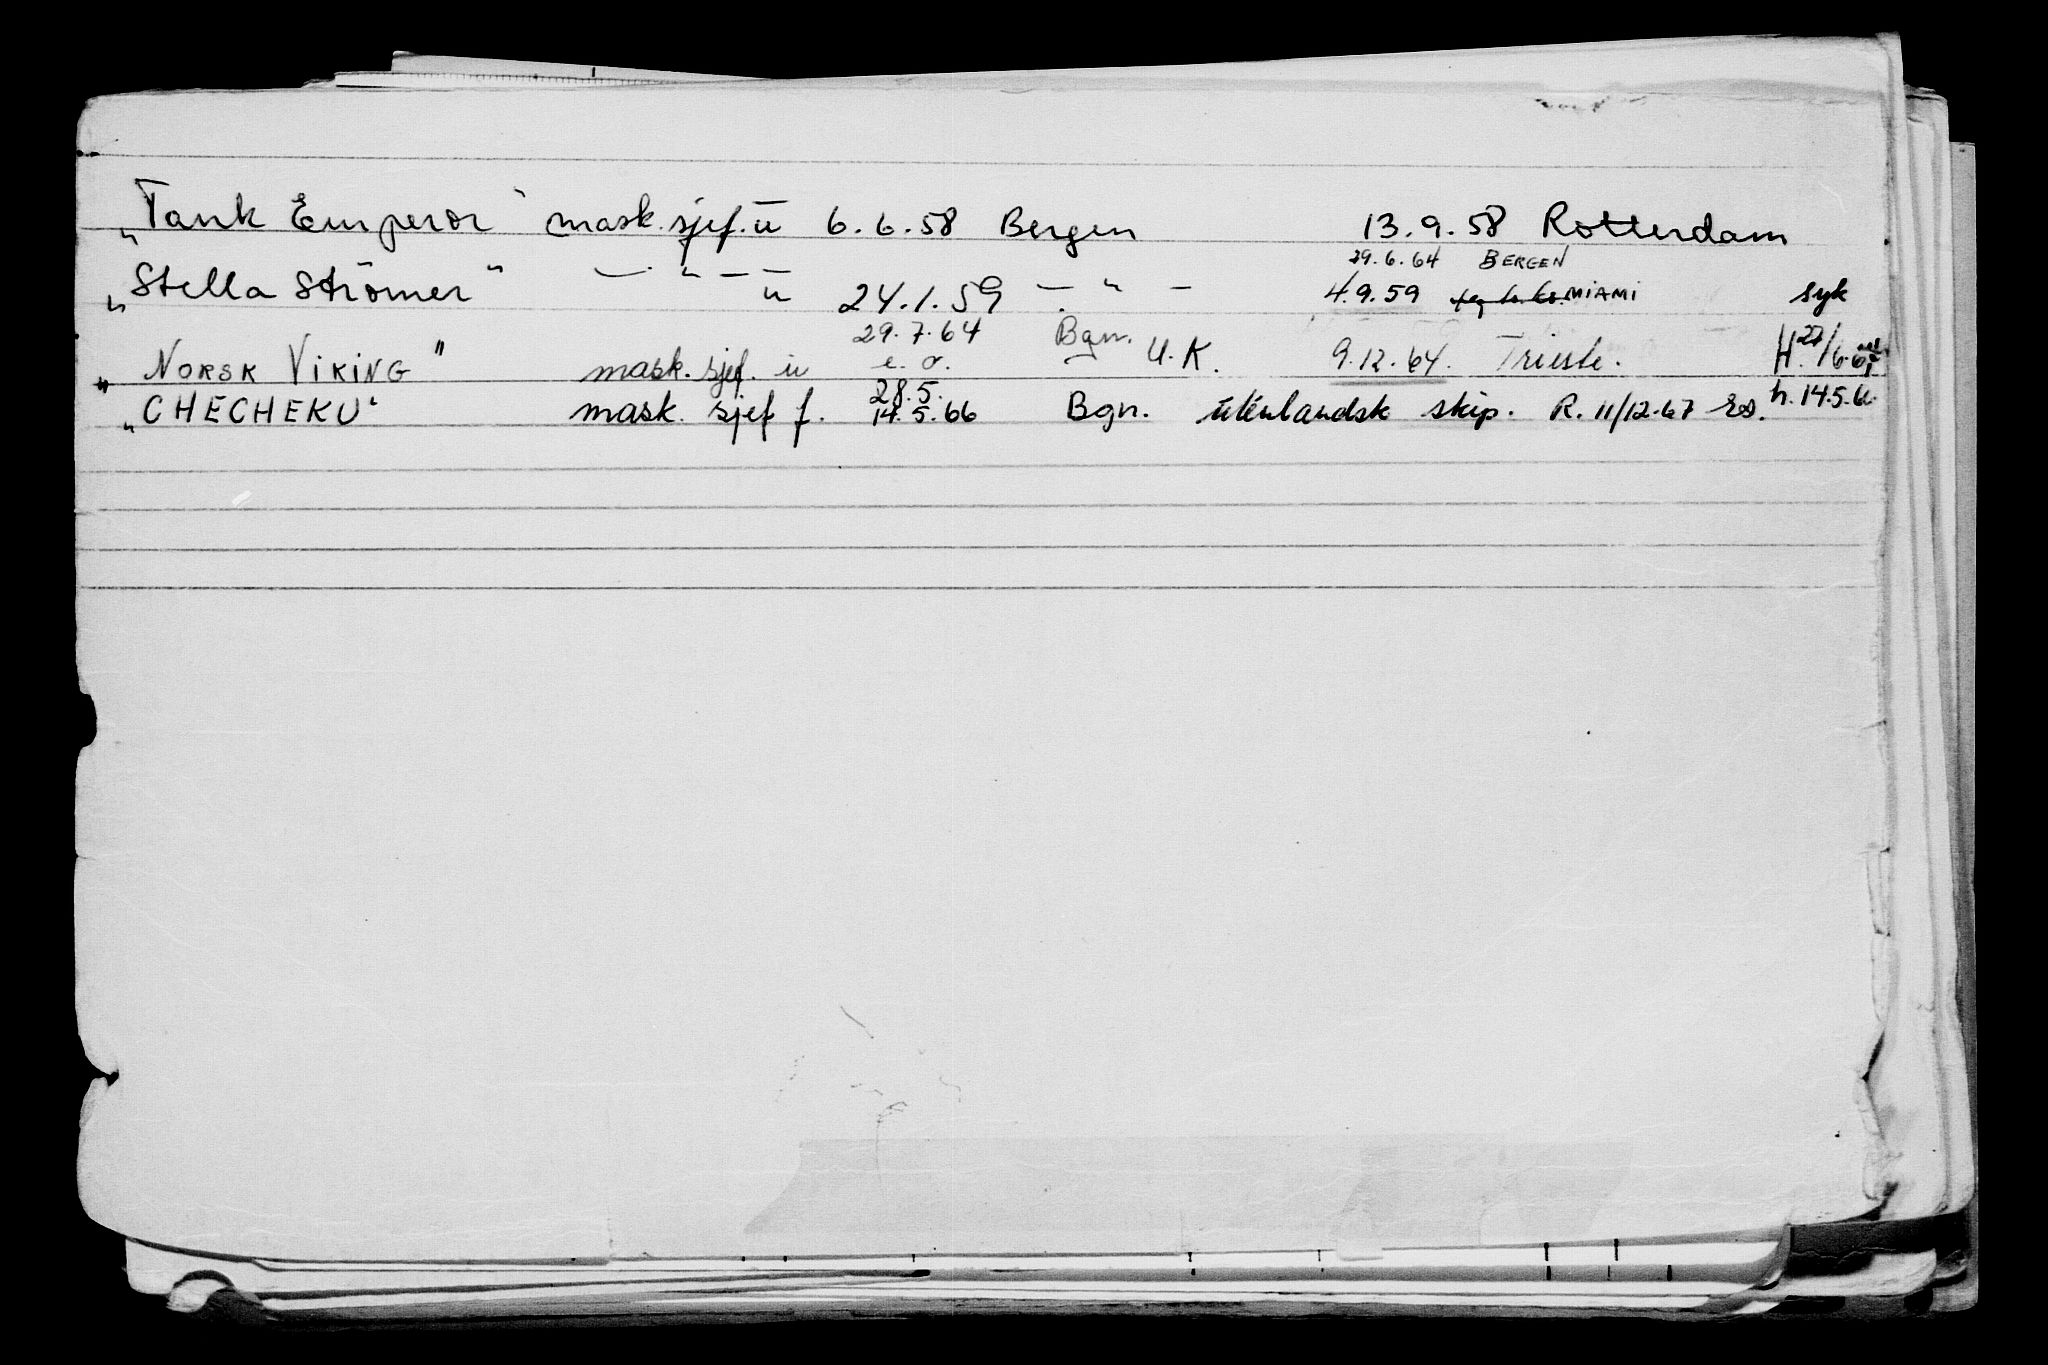 "Tank Emperor" mask.sjef.u 6.6.58 Bergen 13.9.58 Rotterdam
29.6.64 BERGEN
"Stella Strömer" — " — u 24.1.59 — " — 4.9.59 MIAMI syk
29.7.64 Bgn.
"NORSK VIKING" mask. sjef. u e. o. U.K. 9.12.64. Trieste.
28.5.
"CHECHEKU" mask. sjef f. 14.5.66 Bgn. utenlandsk skip. R. 11/12.67 Es. h. 14.5.6